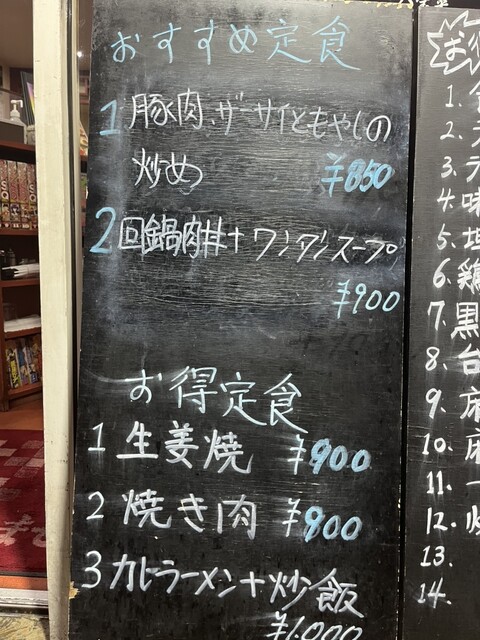 おすすめ定食
1 豚肉、ザーサイともやしの
炒め ¥850
2 回鍋肉丼+ワンタンスープ
¥900
お得定食
1 生姜焼 ¥900
2 焼き肉 ¥900
3 カレーラーメン+炒飯
¥1000
お
1.
2.
3.
4. 味
5. 坦
6. 鶏
7. 黒
8. 台
9. 麻
10. 麻
11.
12. 炒
13.
14.